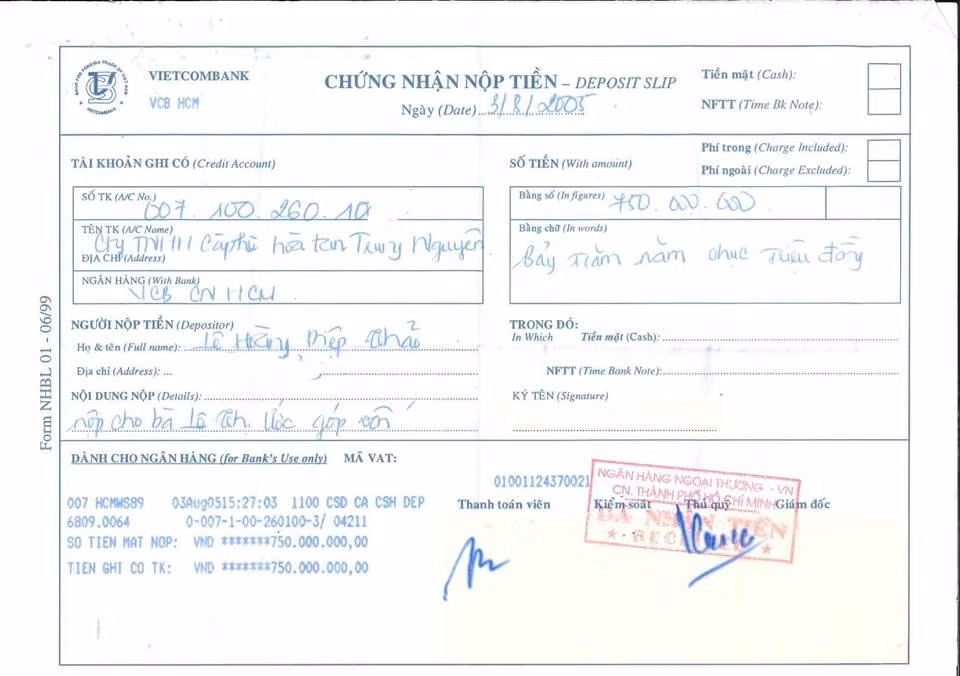 BANK FOR FOREIGN TRADE OF VIET NAM
VIETCOMBANK
VIETCOMBANK
VCB HCM
CHỨNG NHẬN NỘP TIỀN – DEPOSIT SLIP
Ngày (Date)...3/8/2005
Tiền mặt (Cash):
NFTT (Time Bk Note):
Phí trong (Charge Included):
Phí ngoài (Charge Excluded):
TÀI KHOẢN GHI CÓ (Credit Account)
SỐ TIỀN (With amount)
SỐ TK (A/C No.)
007.100.260.10
TÊN TK (A/C Name)
Cty TNHH Càphê hòa tan Trung Nguyên
ĐỊA CHỈ (Address)
NGÂN HÀNG (With Bank)
VCB CN HCM
Bằng số (In figures) 750.000.000
Bằng chữ (In words)
Bảy trăm năm chục triệu đồng
NGƯỜI NỘP TIỀN (Depositor)
Họ & tên (Full name): Lê Hoàng Diệp Thảo
Địa chỉ (Address): ...
NỘI DUNG NỘP (Details):
nộp cho bà Lê Th. Ước góp vốn
TRONG ĐÓ:
In Which Tiền mặt (Cash):
NFTT (Time Bank Note):
KÝ TÊN (Signature)
Form NHBL 01 - 06/99
DÀNH CHO NGÂN HÀNG (for Bank's Use only) MÃ VAT:
01001124370021
007 HCMWS89 03Aug0515:27:03 1100 CSD CA CSH DEP
6809.0064 0-007-1-00-260100-3/ 04211
SO TIEN MAT NOP: VND *******750.000.000,00
TIEN GHI CO TK: VND *******750.000.000,00
Thanh toán viên Kiểm soát Thủ quỹ Giám đốc
NGÂN HÀNG NGOẠI THƯƠNG - VN
CN. THÀNH PHỐ HỒ CHÍ MINH
ĐÃ NHẬN TIỀN